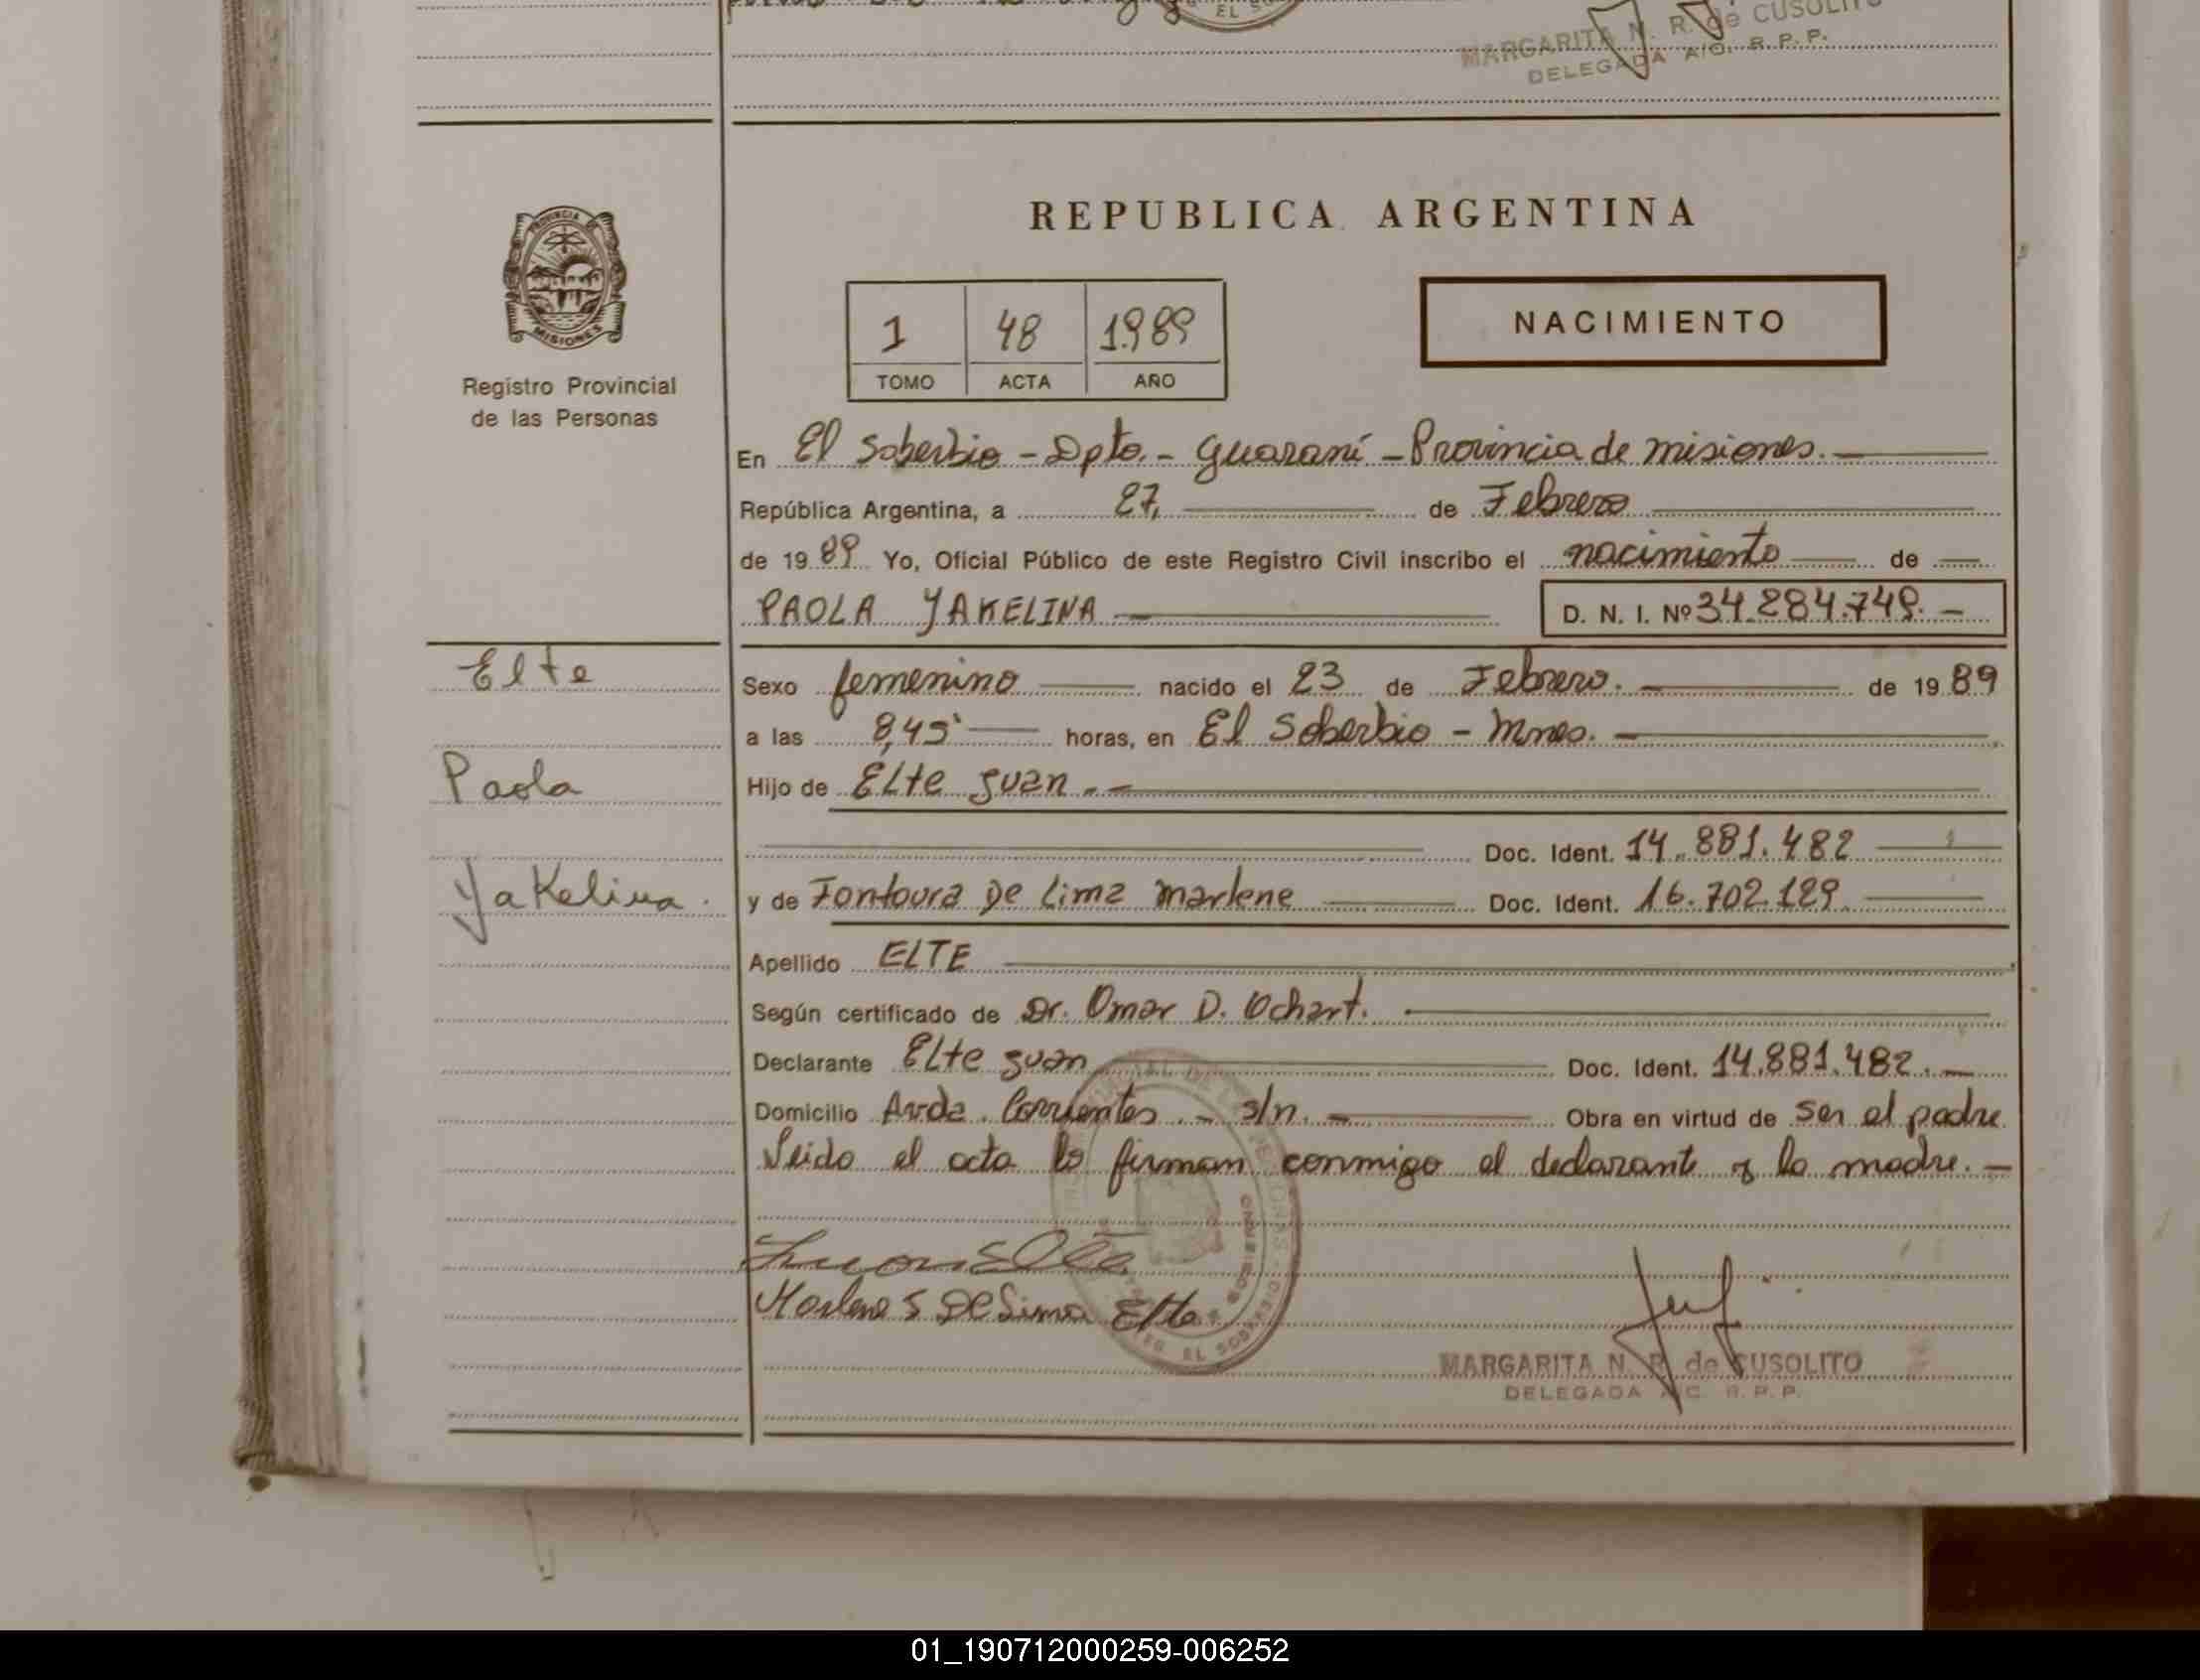 MARGARITA N. R. de CUSOLITO
DELEGADA A/C. R.P.P.
REPUBLICA ARGENTINA
PROVINCIA DE
MISIONES
Registro Provincial
de las Personas
1 48 1989
TOMO ACTA AÑO
NACIMIENTO
En El Soberbio - Dpto. - Guaraní - Provincia de misiones.
República Argentina, a 27, de Febrero
de 19 89 Yo, Oficial Público de este Registro Civil inscribo el nacimiento de
PAOLA YAKELINA D. N. I. Nº 34.284.749.-
Elte
Paola
Yakelina.
Sexo femenino nacido el 23 de Febrero. de 19 89
a las 8,45' horas, en El Soberbio - Mnes. -
Hijo de Elte Juan . -
Doc. Ident. 14.881.482
y de Fontoura De Lima Marlene Doc. Ident. 16.702.129
Apellido ELTE
Según certificado de Dr. Omar D. Ochart.
Declarante Elte Juan Doc. Ident. 14.881.482. -
Domicilio Avda. Corrientes. - s/n. - Obra en virtud de ser el padre
Leido el acta la firman conmigo el declarante y la madre. -
Juan Elte
Marlene S De Lima Elte
EL SOBERBIO
MARGARITA N. R. de CUSOLITO
DELEGADA A/C. R.P.P.
01_190712000259-006252